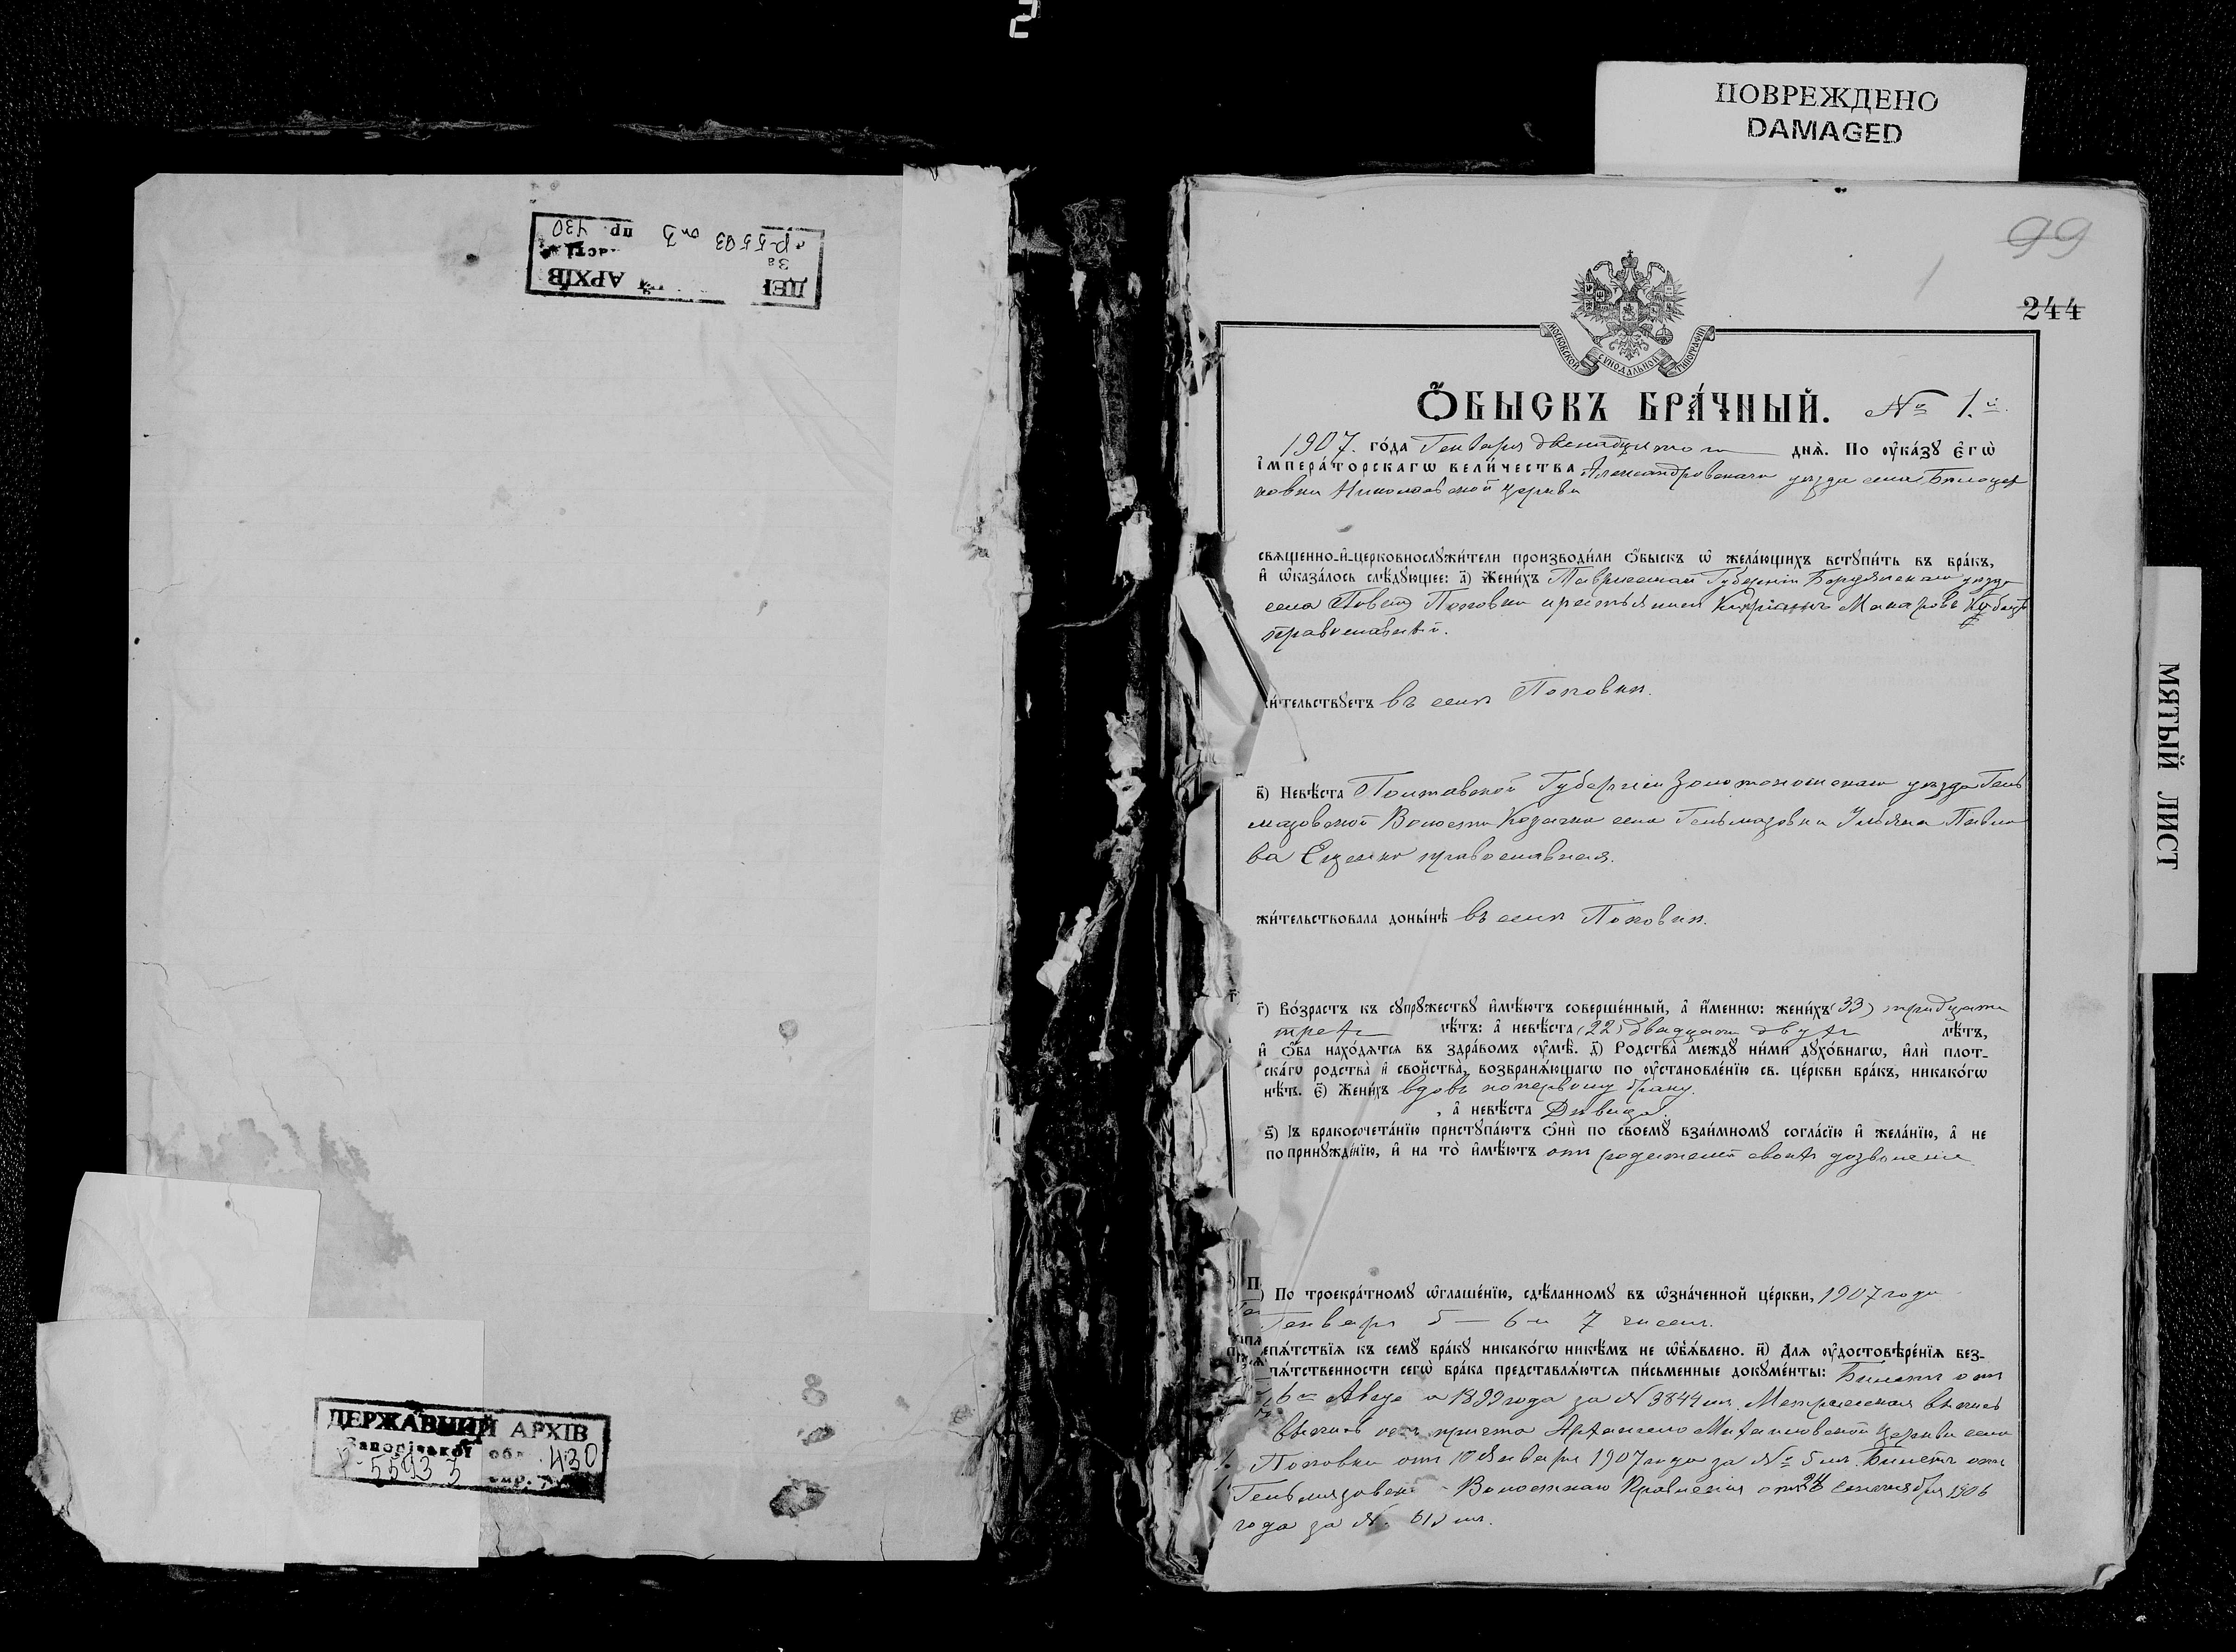 2
ПОВРЕЖДЕНО
DAMAGED
99
1
244
МОСКОВСКОЙ СѴНОДАЛЬНОЙ ТИПОГРАФІИ
Ѻ҆БЫСКЪ БРА́ЧНЫЙ. № 1.й
1907. го́да Генваря двенадцатого днѧ̀. По ᲂу҆ка́зꙋ є҆гѡ̀
і҆мпера́торскагѡ вели́чества Александровскаго уѣзда села Бѣлоцер
ковки Николаевской церкви
свѧще́нно-и҆-церковнослꙋжи́тели производи́ли ѻ҆́быскъ ѡ҆ жела́ющихъ встꙋпи́ть въ бра́къ,
и҆ ѡ҆каза́лось слѣ́дꙋющее: а҃) Жени́хъ Таврической Губерніи Бердянскаго уѣзда
села Поповки крестьянинъ Макаровъ
православный.
и́тельствꙋетъ въ селѣ Поповкѣ.
в҃) Невѣ́ста Полтавской Губерніи Золотоношскаго уѣзда Гель
мязовской Волости Козачка села Гельмязовки Ульяна Павло
ва Еценко православная.
жи́тельствовала доны́нѣ въ селѣ Поповкѣ.
г҃) Во́зрастъ къ сꙋпрꙋ́жествꙋ и҆мѣ́ютъ соверше́нный, а҆ и҆́меннѡ: жени́хъ (33) тридцати
трехъ лѣ́тъ: а҆ невѣ́ста (22) двадцати двухъ лѣ́тъ,
и҆ ѻ҆́ба нахо́дѧтсѧ въ здра́вомъ ᲂу҆мѣ̀. д҃) Родства̀ междꙋ̀ ни́ми дꙋхо́внагѡ, и҆лѝ плот-
ска́гѡ родства̀ и҆ сво́йства̀, возбранѧ́ющагѡ по ᲂу҆становле́нїю св. це́ркви бра́къ, никако́гѡ
нѣ́тъ. є҃) Жени́хъ вдовъ по первому браку.
, а҆ невѣ́ста Дѣвица.
ѕ҃) Къ бракосочета́нїю пристꙋпа́ютъ ѻ҆нѝ по своемꙋ̀ взаи́мномꙋ согла́сїю и҆ жела́нїю, а҆ не
по принꙋжде́нїю, и҆ на то̀ и҆мѣ́ютъ отъ родителей своихъ дозволеніе
) По троекра́тномꙋ ѡ҆глаше́нїю, сдѣ́ланномꙋ въ ѡ҆зна́ченной це́ркви, 1907 года
Генваря 5 – 6 и 7 чиселъ.
епѧ́тствїѧ къ семꙋ̀ бра́кꙋ никако́гѡ никѣ́мъ не ѡ҆б̾ѧ́влено. и҃) Длѧ ᲂу҆достовѣре́нїѧ без-
пѧ́тственности сегѡ̀ бра́ка представлѧ́ютсѧ пи́сьменные докꙋме́нты: Билетъ отъ
6го 1899 года за № 3844мъ. Метрическая выпись
выпись причта Архангело Михайловской Церкви села
Поповки отъ 10 Января 1907 года за № 5мъ. Билетъ отъ
Гельмязовск Волостнаго Правленія отъ 24 сентября 1906
года за № мъ.
МЯТЫЙ ЛИСТ
ДЕРЖАВНИЙ АРХІВ
Запорізької обл.
Р-5593 3 430
АРХІВ
р-5593 оп 3 пр. 430